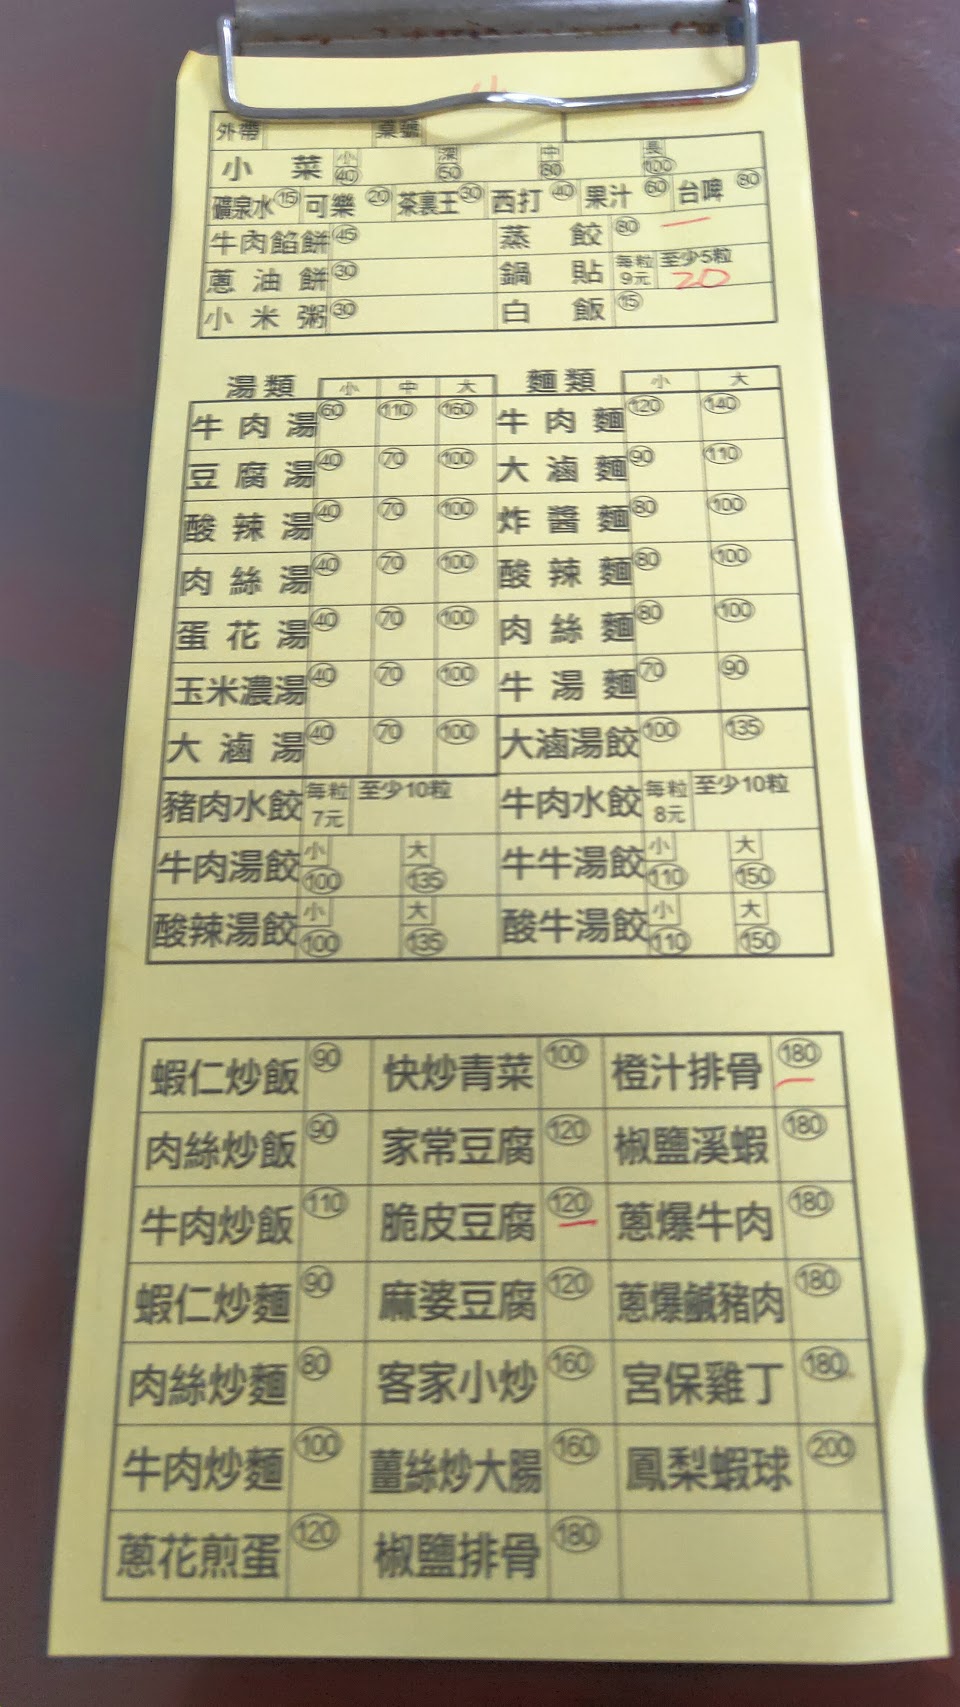 外帶 桌號
小菜 小 40 深 50 中 80 長 100
礦泉水 15 可樂 20 茶裏王 30 西打 40 果汁 60 台啤 80
牛肉餡餅 45 蒸餃 80 一
蔥油餅 30 鍋貼 每粒9元 至少5粒 20
小米粥 30 白飯 15
湯類 小 中 大 麵類 小 大
牛肉湯 60 110 160 牛肉麵 120 140
豆腐湯 40 70 100 大滷麵 90 110
酸辣湯 40 70 100 炸醬麵 80 100
肉絲湯 40 70 100 酸辣麵 80 100
蛋花湯 40 70 100 肉絲麵 80 100
玉米濃湯 40 70 100 牛湯麵 70 90
大滷湯 40 70 100 大滷湯餃 100 135
豬肉水餃 每粒7元 至少10粒 牛肉水餃 每粒8元 至少10粒
牛肉湯餃 小 100 大 135 牛牛湯餃 小 110 大 150
酸辣湯餃 小 100 大 135 酸牛湯餃 小 110 大 150
蝦仁炒飯 90 快炒青菜 100 橙汁排骨 180 一
肉絲炒飯 90 家常豆腐 120 椒鹽溪蝦 180
牛肉炒飯 110 脆皮豆腐 120 一 蔥爆牛肉 180
蝦仁炒麵 90 麻婆豆腐 120 蔥爆鹹豬肉 180
肉絲炒麵 80 客家小炒 160 宮保雞丁 180
牛肉炒麵 100 薑絲炒大腸 160 鳳梨蝦球 200
蔥花煎蛋 120 椒鹽排骨 180